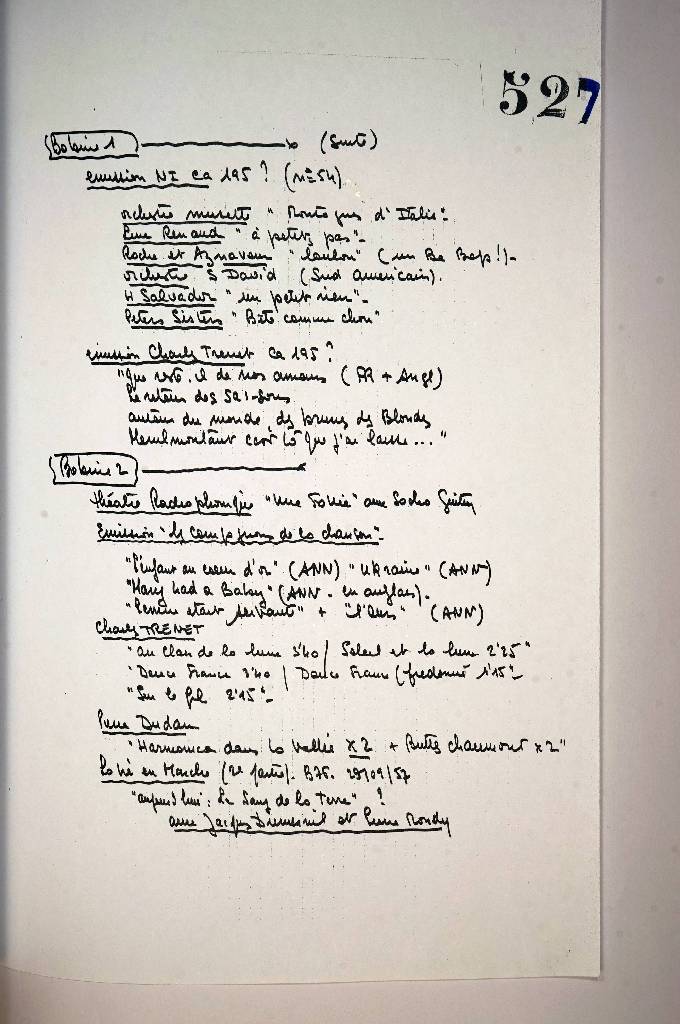 527
Bobine 1 (Suite)
emission NI Ca 195? (n=54)
orchestre musette "Montagnes d'Italie"
Line Renaud "à petits pas"
Roche et Aznavour (un Be Bop!)
orchestre S David (Sud americain).
H Salvador "un petit rien"
Peters Sisters "Bête comme chou"
emission Charles Trenet Ca 195?
"Que reste.il de nos amours (FR + Angl)
Le retour des saisons
autour du monde, des brunes des Blondes
Menilmontant c'est là que j'ai laissé..."
Bobine 2
théatre Radiophonique "Une Folie" avec Sacha Guitry
Emission "les compagnons de la chanson"
"l'enfant au coeur d'or" (ANN) "Ukraine" (ANN)
"Mary had a Baby" (ANN. en anglais).
"Perrine etait servante" + "l'ours" (ANN)
Charles TRENET
"au Clair de la lune 3'40 / Soleil et la lune 2'25"
"Douce France 3'40 / Douce France (fredonné 1'15"
"Sur le fil 2'15"
Pierre Dudan
"Harmonica dans la vallée x2 + Buttes chaumont x2"
La vie en Marche (2e partie). 29/09/57
"aujourd'hui: Le Sang de la Terre" ?
avec Jacques Dumesnil et Pierre Mondy